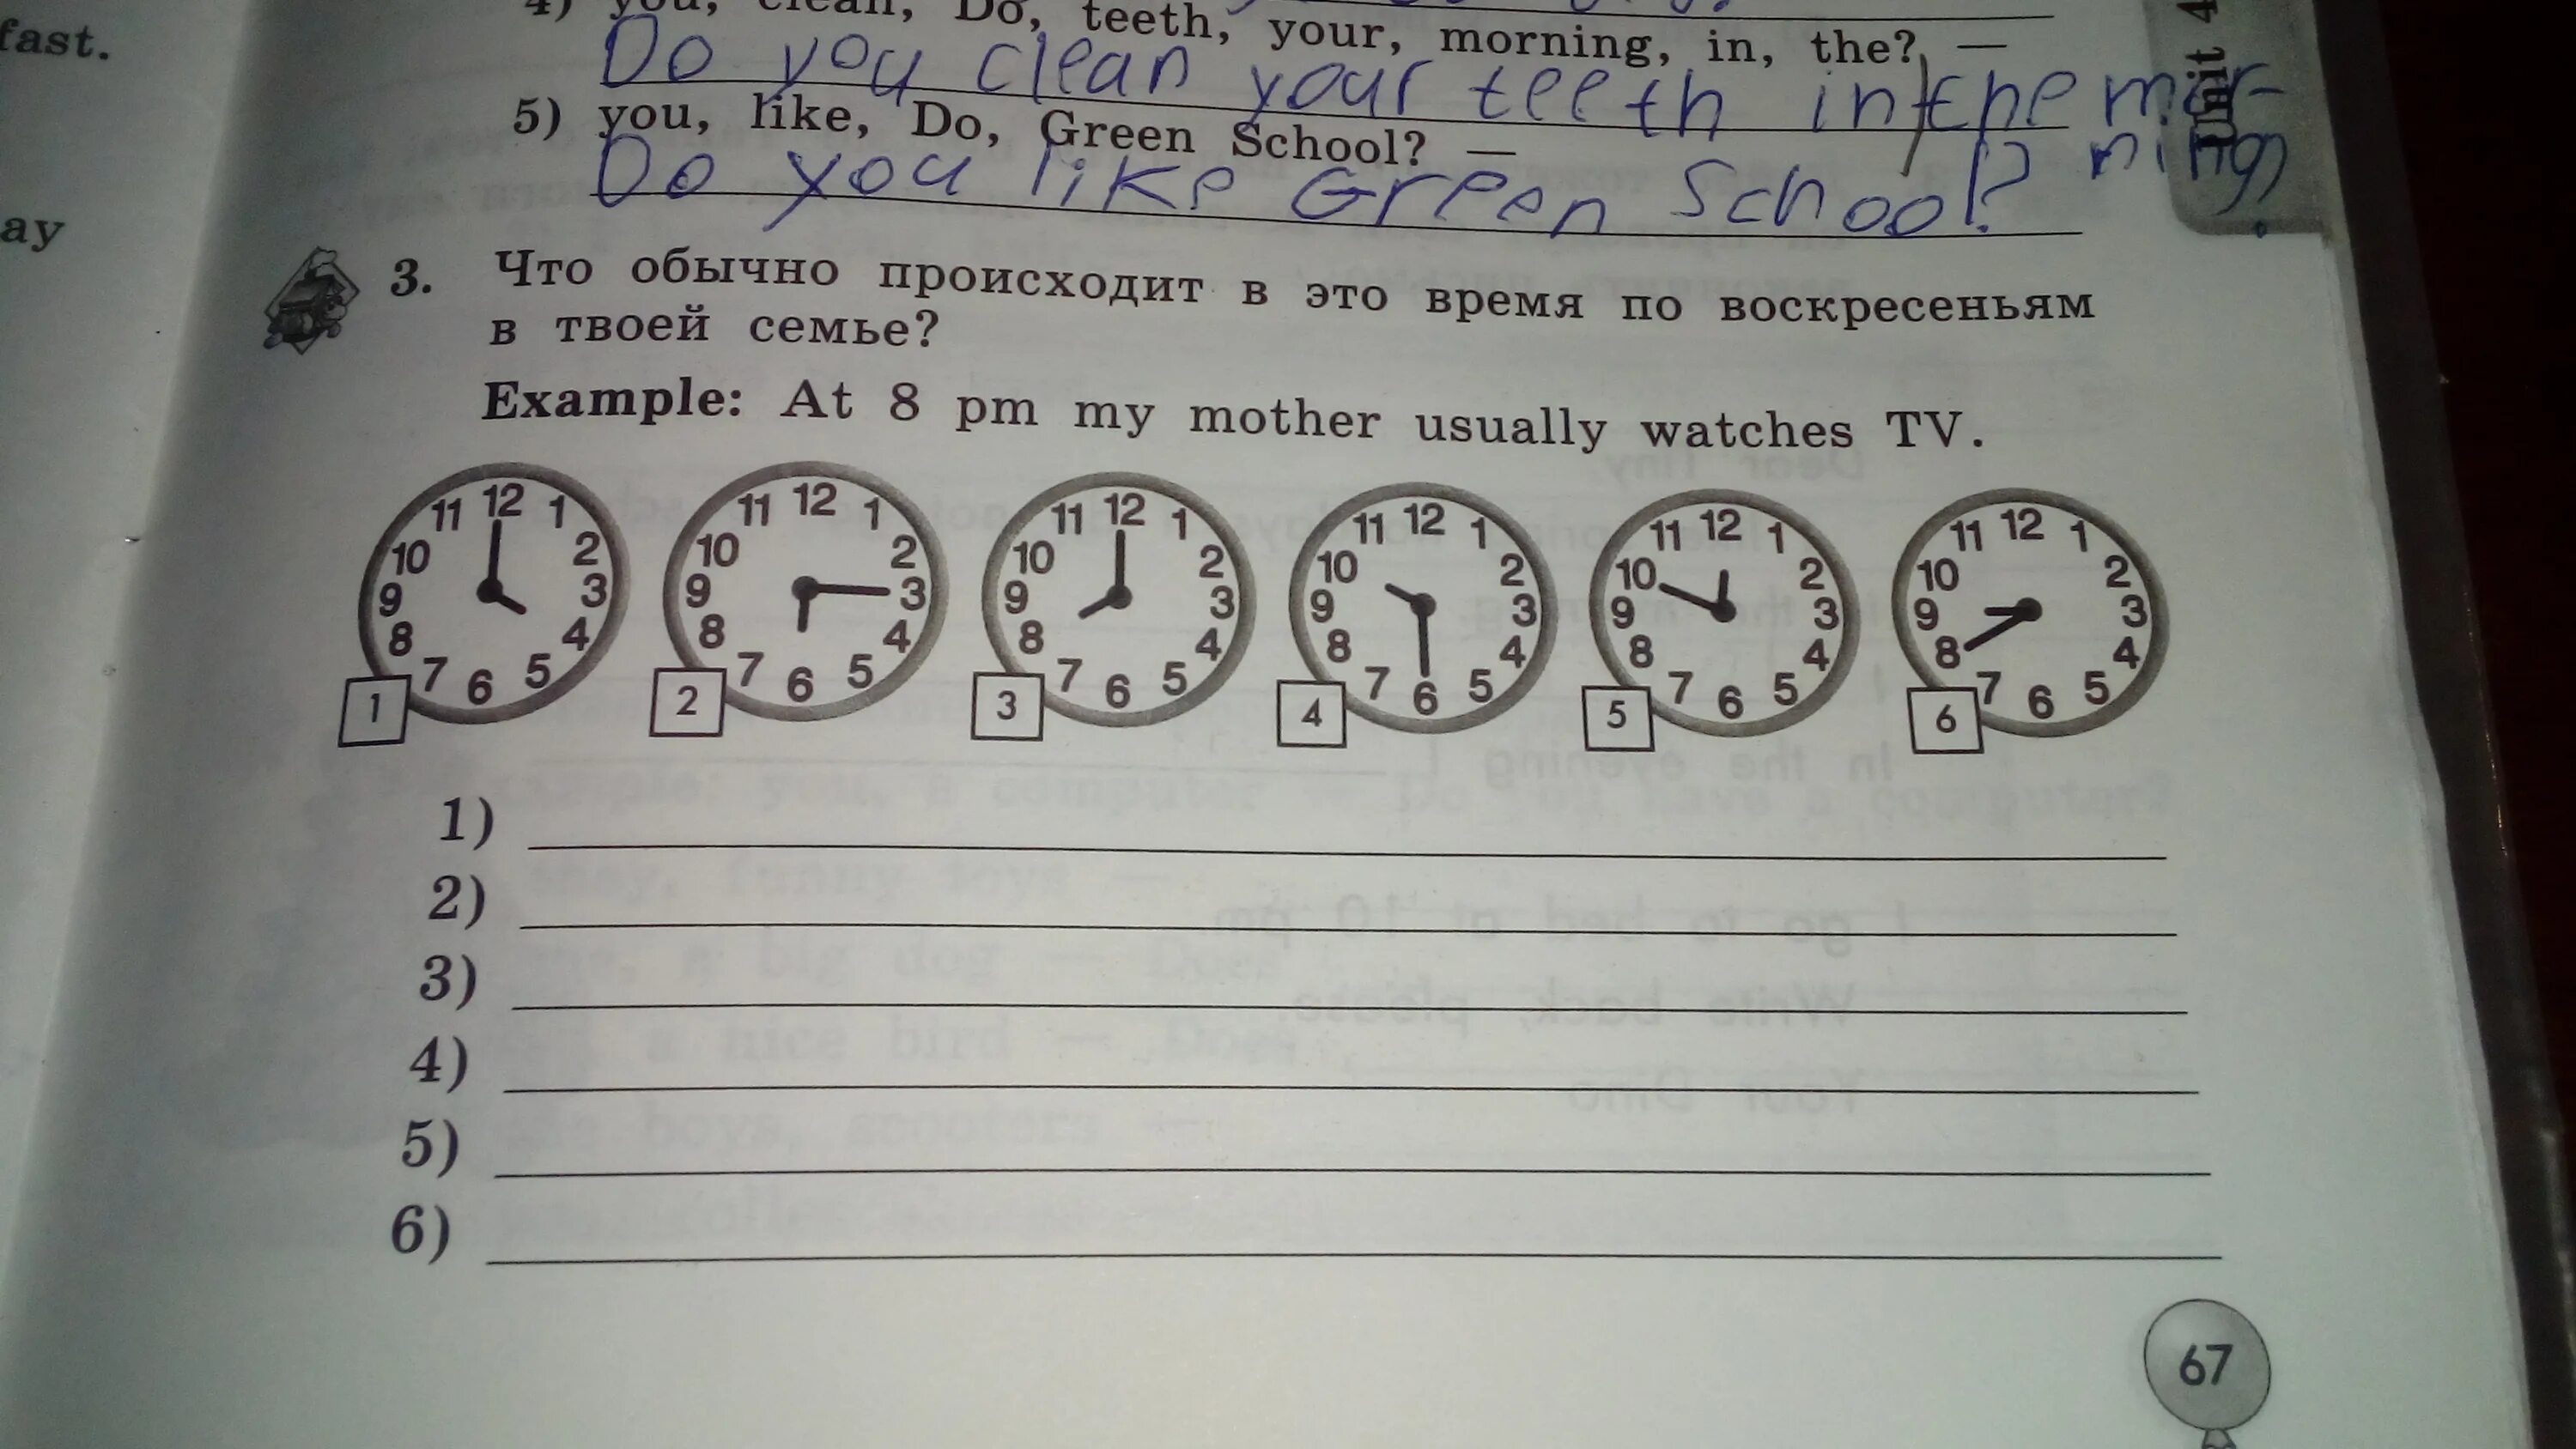 fast.
ay
4) you, clean, Do, teeth, your, morning, in, the? —
Do you clean your teeth in the mor-
ning?
5) you, like, Do, Green School? —
Do you like Green School?
Unit 4
3. Что обычно происходит в это время по воскресеньям
в твоей семье?
Example: At 8 pm my mother usually watches TV.
12 1 2 3 4 5 6 7 8 9 10 11
1
12 1 2 3 4 5 6 7 8 9 10 11
2
12 1 2 3 4 5 6 7 8 9 10 11
3
12 1 2 3 4 5 6 7 8 9 10 11
4
12 1 2 3 4 5 6 7 8 9 10 11
5
12 1 2 3 4 5 6 7 8 9 10 11
6
1)
2)
3)
4)
5)
6)
67